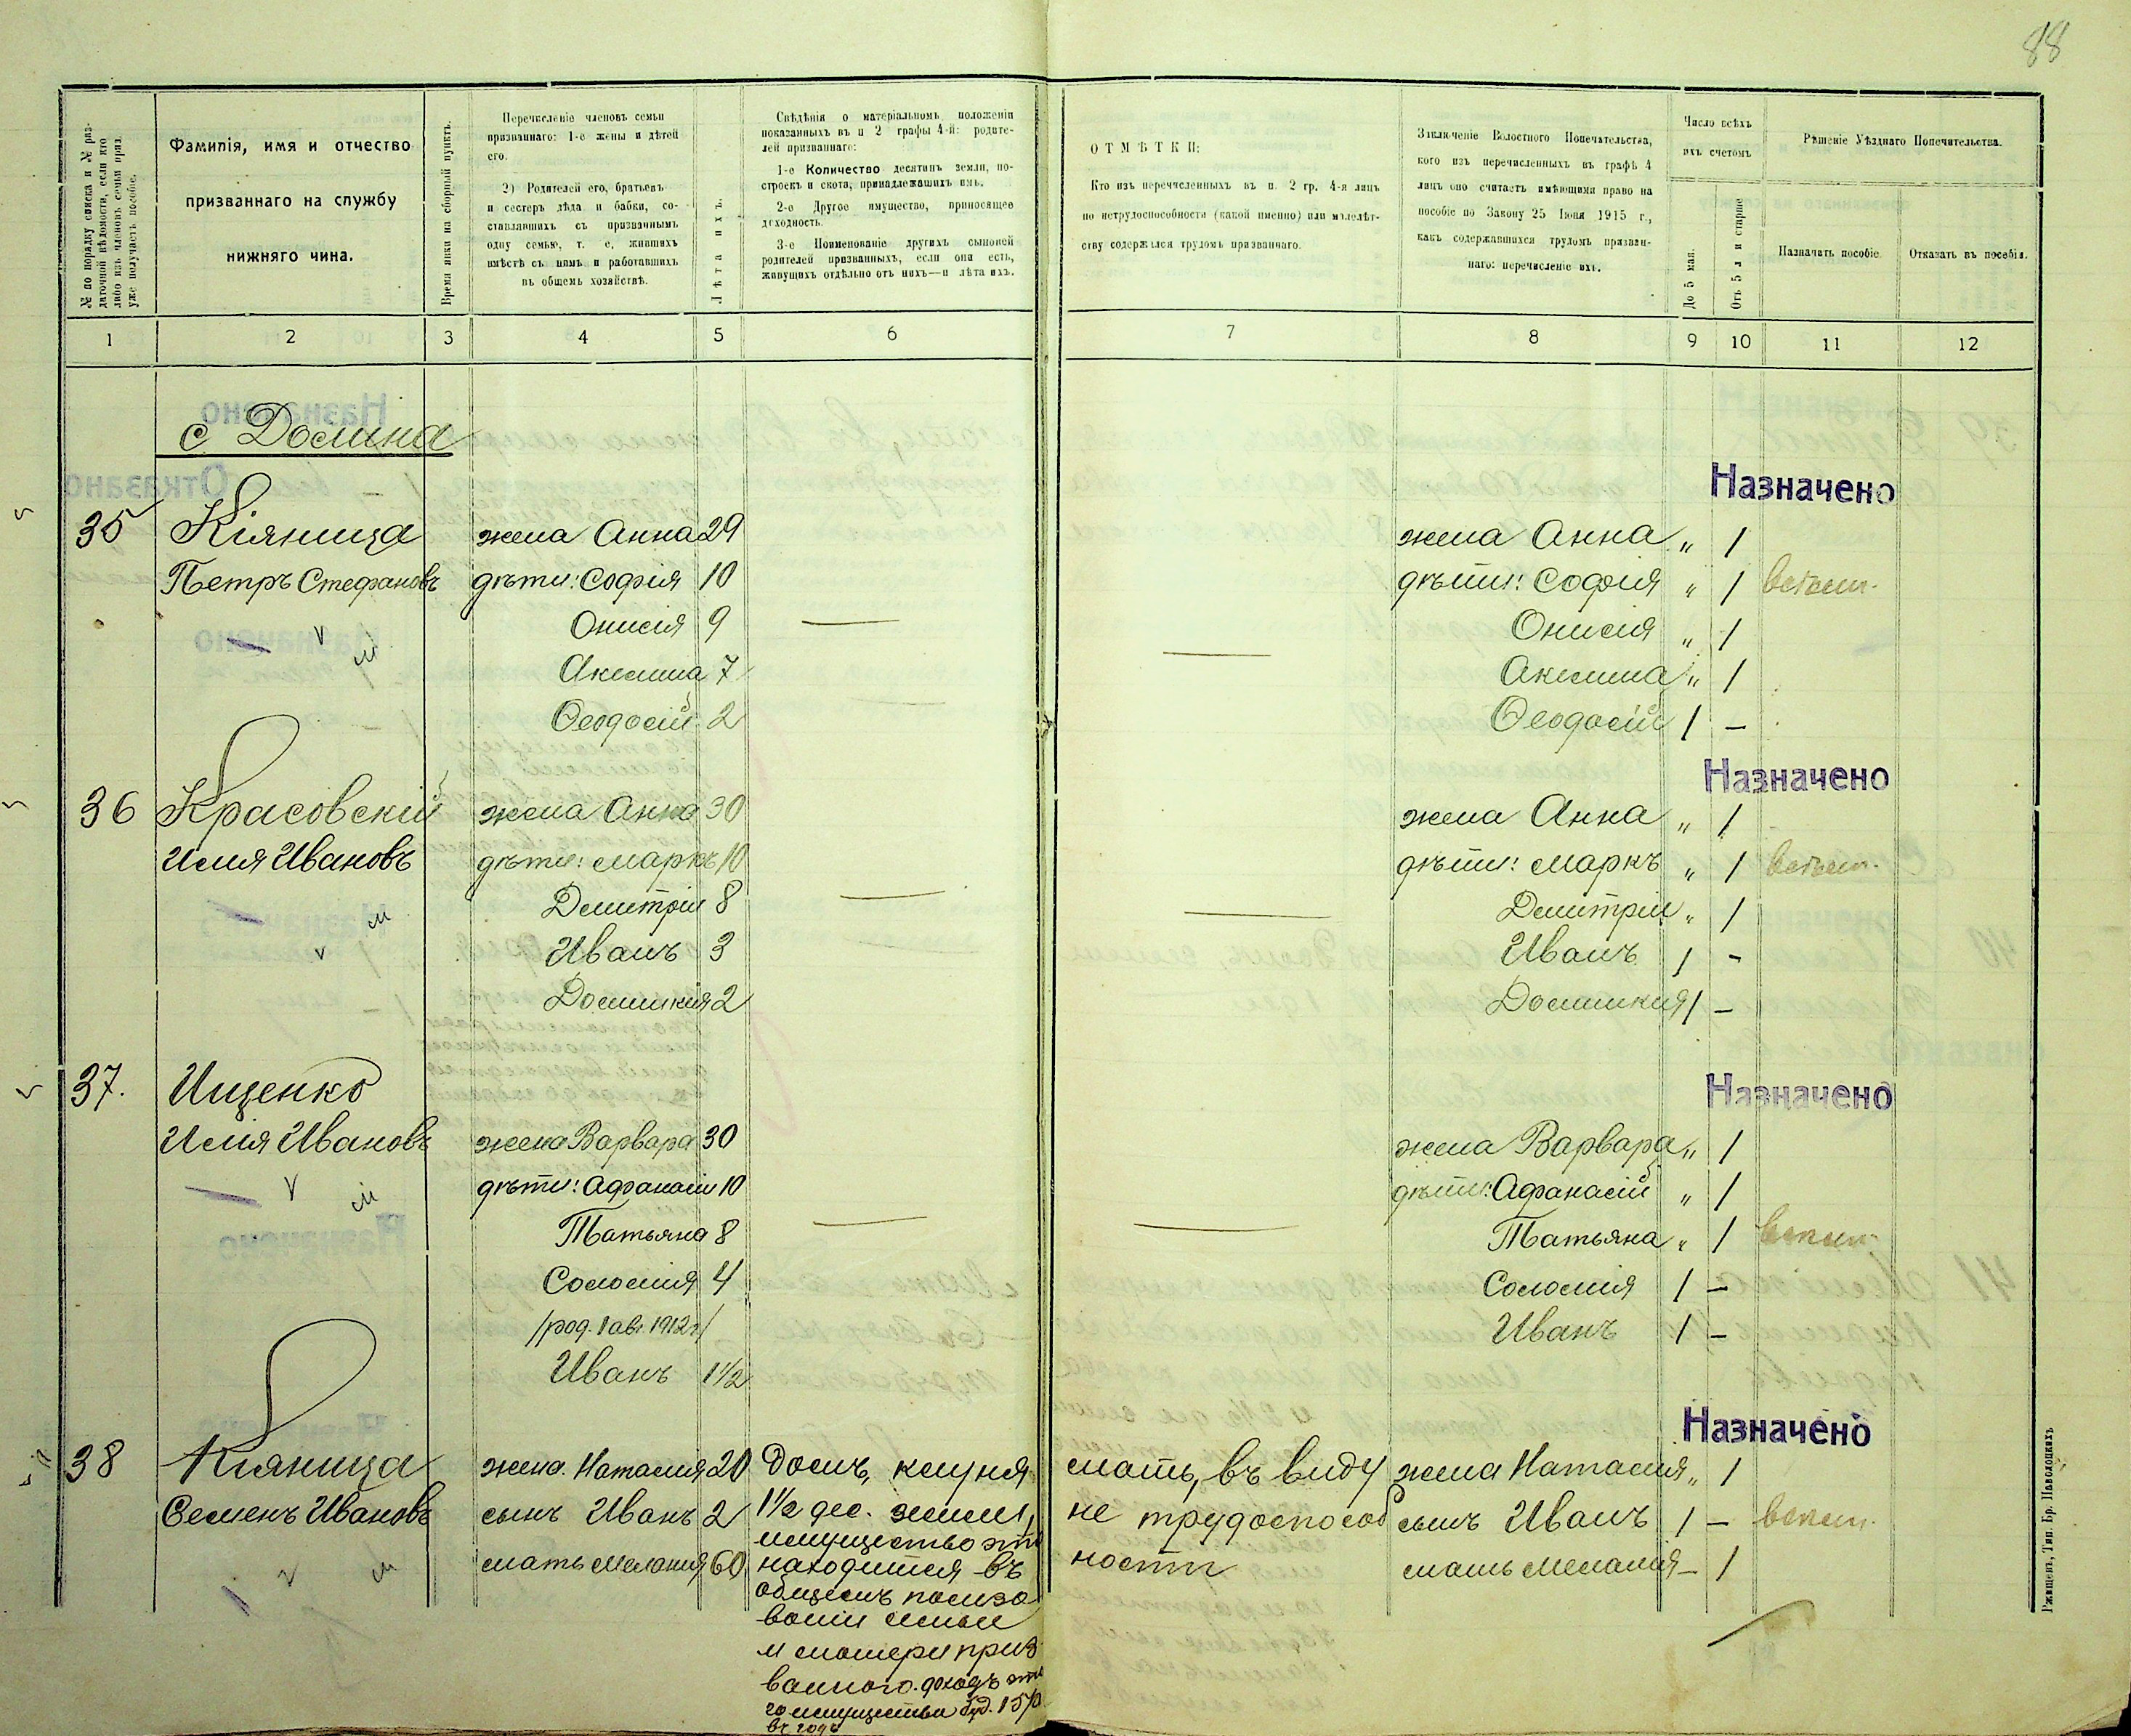 88
№ по порядку списка и № раз-
даточной вѣдомости, если кто
либо изъ членовъ семьи приз.
уже получаетъ пособіе.
Фамилія, имя и отчество
призваннаго на службу
нижняго чина.
Время явки на сборный пунктъ.
Перечисленіе членовъ семьи
призваннаго: 1-е жены и дѣтей
его.
2) Родителей его, братьевъ
и сестеръ дѣда и бабки, со-
ставлявшихъ съ призваннымъ
одну семью, т. е, жившихъ
вмѣстѣ съ нимъ и работавшихъ
въ общемъ хозяйствѣ.
Лѣта ихъ.
Свѣдѣнія о матеріальномъ положеніи
показанныхъ въ п 2 графы 4-й: родите-
лей призваннаго:
1-е Количество десятинъ земли, по-
строекъ и скота, принадлежащихъ имъ.
2-е Другое имущество, приносящее
доходность.
3-е Поименованіе другихъ сыновей
родителей призванныхъ, если они есть,
живущихъ отдѣльно отъ нихъ—и лѣта ихъ.
ОТМѢТКИ:
Кто изъ перечисленныхъ въ п. 2 гр. 4-я лицъ
по нетрудоспособности (какой именно) или малолѣт-
ству содержался трудомъ призваннаго.
Заключеніе Волостного Попечительства,
кого изъ перечисленныхъ въ графѣ 4
лицъ оно считаетъ имѣющими право на
пособіе по Закону 25 Іюня 1915 г.,
какъ содержавшихся трудомъ призван-
наго: перечисленіе ихъ.
Число всѣхъ
ихъ счетомъ
До 5 мал.
Отъ 5 л и старше
Рѣшеніе Уѣзднаго Попечительства.
Назначить пособіе
Отказать въ пособіи.
1 2 3 4 5 6 7 8 9 10 11 12
с Долина
Назначено
35 Кіяница жена Анна 29 жена Анна " 1
Петръ Стефановъ дѣти: Софія 10 дѣти: Софія " 1
Онисія 9 — — Онисія " 1
Аксинia 7 Аксинia " 1
Ѳеодосій 2 Ѳеодосій 1 —
Назначено
36 Красовскій жена Анна 30 жена Анна " 1
Илія Ивановъ дѣти: Маркъ 10 дѣти: Маркъ " 1
Димитрій 8 — — Димитрій " 1
Иванъ 3 Иванъ 1 -
Домникія 2 Домникія 1 —
Назначено
37. Ищенко
Илія Ивановъ жена Варвара 30 жена Варвара " 1
дѣти: Афанасій 10 дѣти: Афанасій " 1
Татьяна 8 — — Татьяна " 1
Соломія 4 Соломія 1 —
/род. 1 авг. 1912 г/ Иванъ 1 —
Иванъ 1½
Назначено
38 Кіяница жена Наталія 20 Домъ, клуня мать, въ виду жена Наталія " 1
Семенъ Ивановъ сынъ Иванъ 2 1½ дес. земли, не трудоспособ сынъ Иванъ 1 —
имущество это
мать Меланія 60 находится въ ности мать Меланія — 1
общемъ пользо
ваніи семьи
и матери приз
ваннаго. доходъ это
го имущества буд. 15 р
въ годъ
Ржищевъ, Тип. Бр. Паволоцкихъ